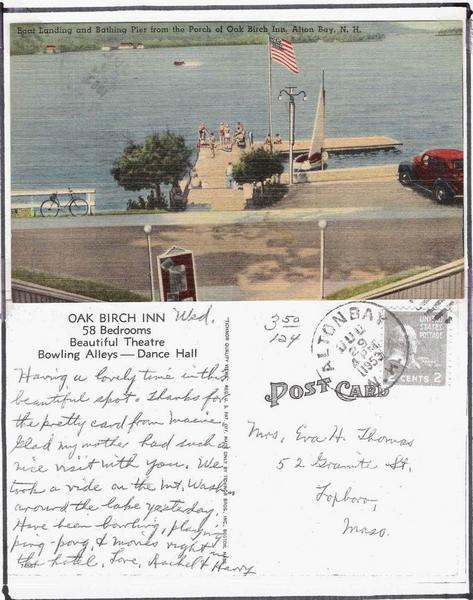 Boat Landing and Bathing Pier from the Porch of Oak Birch Inn, Alton Bay, N. H.
OAK BIRCH INN
58 Bedrooms
Beautiful Theatre
Bowling Alleys — Dance Hall
Wed.
Having a lovely time in this
beautiful spot. Thanks for
the pretty card from Maine.
Glad my mother had such a
nice visit with you. We
took a ride on the Mt. Wash.
around the lake yesterday.
Have been bowling, playing
ping-pong, & movies right in
the hotel. Love, Rachel & Harry
3 50
124
ALTON BAY
JUL
29
4 PM
1953
N.H.
UNITED
STATES
POSTAGE
CENTS 2
POST CARD
Mrs. Eva H. Thomas
52 Granite St.
Foxboro,
Mass.